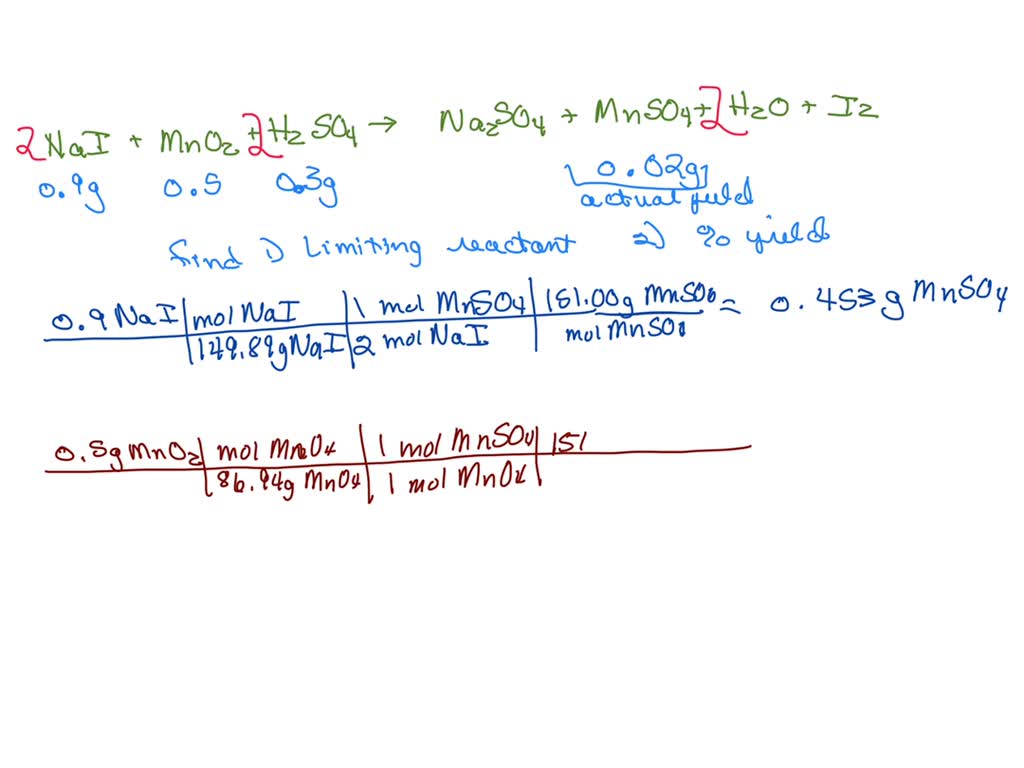 2NaI + MnO2 + 2H2SO4 → Na2SO4 + MnSO4 + 2H2O + I2
0.9g 0.5 0.3g 0.02g
actual yield
find 1) Limiting reactant 2) % yield
0.9 NaI | mol NaI | 1 mol MnSO4 | 151.00g MnSO4 = 0.453 g MnSO4
149.89g NaI | 2 mol NaI | mol MnSO4
0.5g MnO2 | mol MnO4 | 1 mol MnSO4 | 151
86.94g MnO4 | 1 mol MnO4